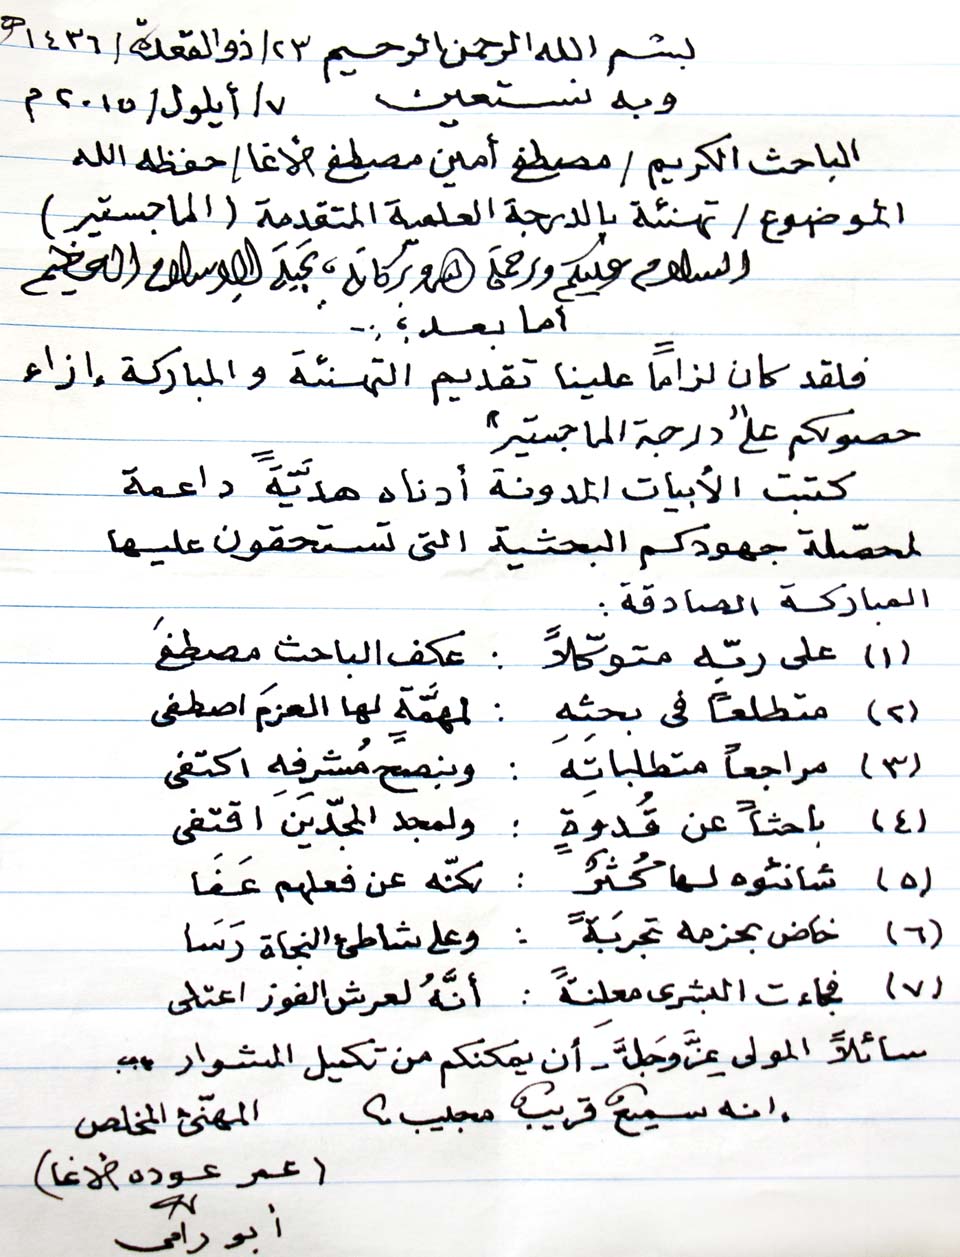 بسم الله الرحمن الرحيم ٢٣/ذو القعدة/١٤٣٦هـ
وبه نستعين ٧/أيلول/٢٠١٥م
الباحث الكريم / مصطفى أمين مصطفى الأغا/ حفظه الله
الموضوع / تهنئة بالدرجة العلمية المتقدمة (الماجستير)
السلام عليكم ورحمة الله وبركاته، تحية الإسلام العظيم
أما بعد؛ :-
فلقد كان لزاماً علينا تقديم التهنئة والمباركة إزاء
حصولكم على "درجة الماجستير"
كتبت الأبيات المدونة أدناه هديَّةً داعمة
لمحصّلة جهودكم البحثية التي تستحقون عليها
المباركة الصادقة:
(١) على ربّه متوكّلاً : عكف الباحث مصطفَى
(٢) متطلعاً في بحثِهِ : لمهمَّةٍ لها العزمَ اصطفى
(٣) مراجعاً متطلباتِهِ : وبنصحِ مُشرفِهِ اكتفى
(٤) باحثاً عن قُدوةٍ : ولمجد المجدّينَ اقتفى
(٥) شانئوه لها كُثْرٌ : لكنّه عن فعلهم عَفَا
(٦) خاض بحزمه تجربَةً : وعلى شاطئ النجاة رَسَا
(٧) فجاءت البشرى معلنةً : أنَّهُ لعرش الفوز اعتلى
سائلاً المولى عزَّ وجلَّ - أن يمكنكم من تكميل المشوار ..
إنه سميعٌ قريبٌ مجيب؟ المهنّئ المخلص
(عمر عوده الأغا)
أبو رامي